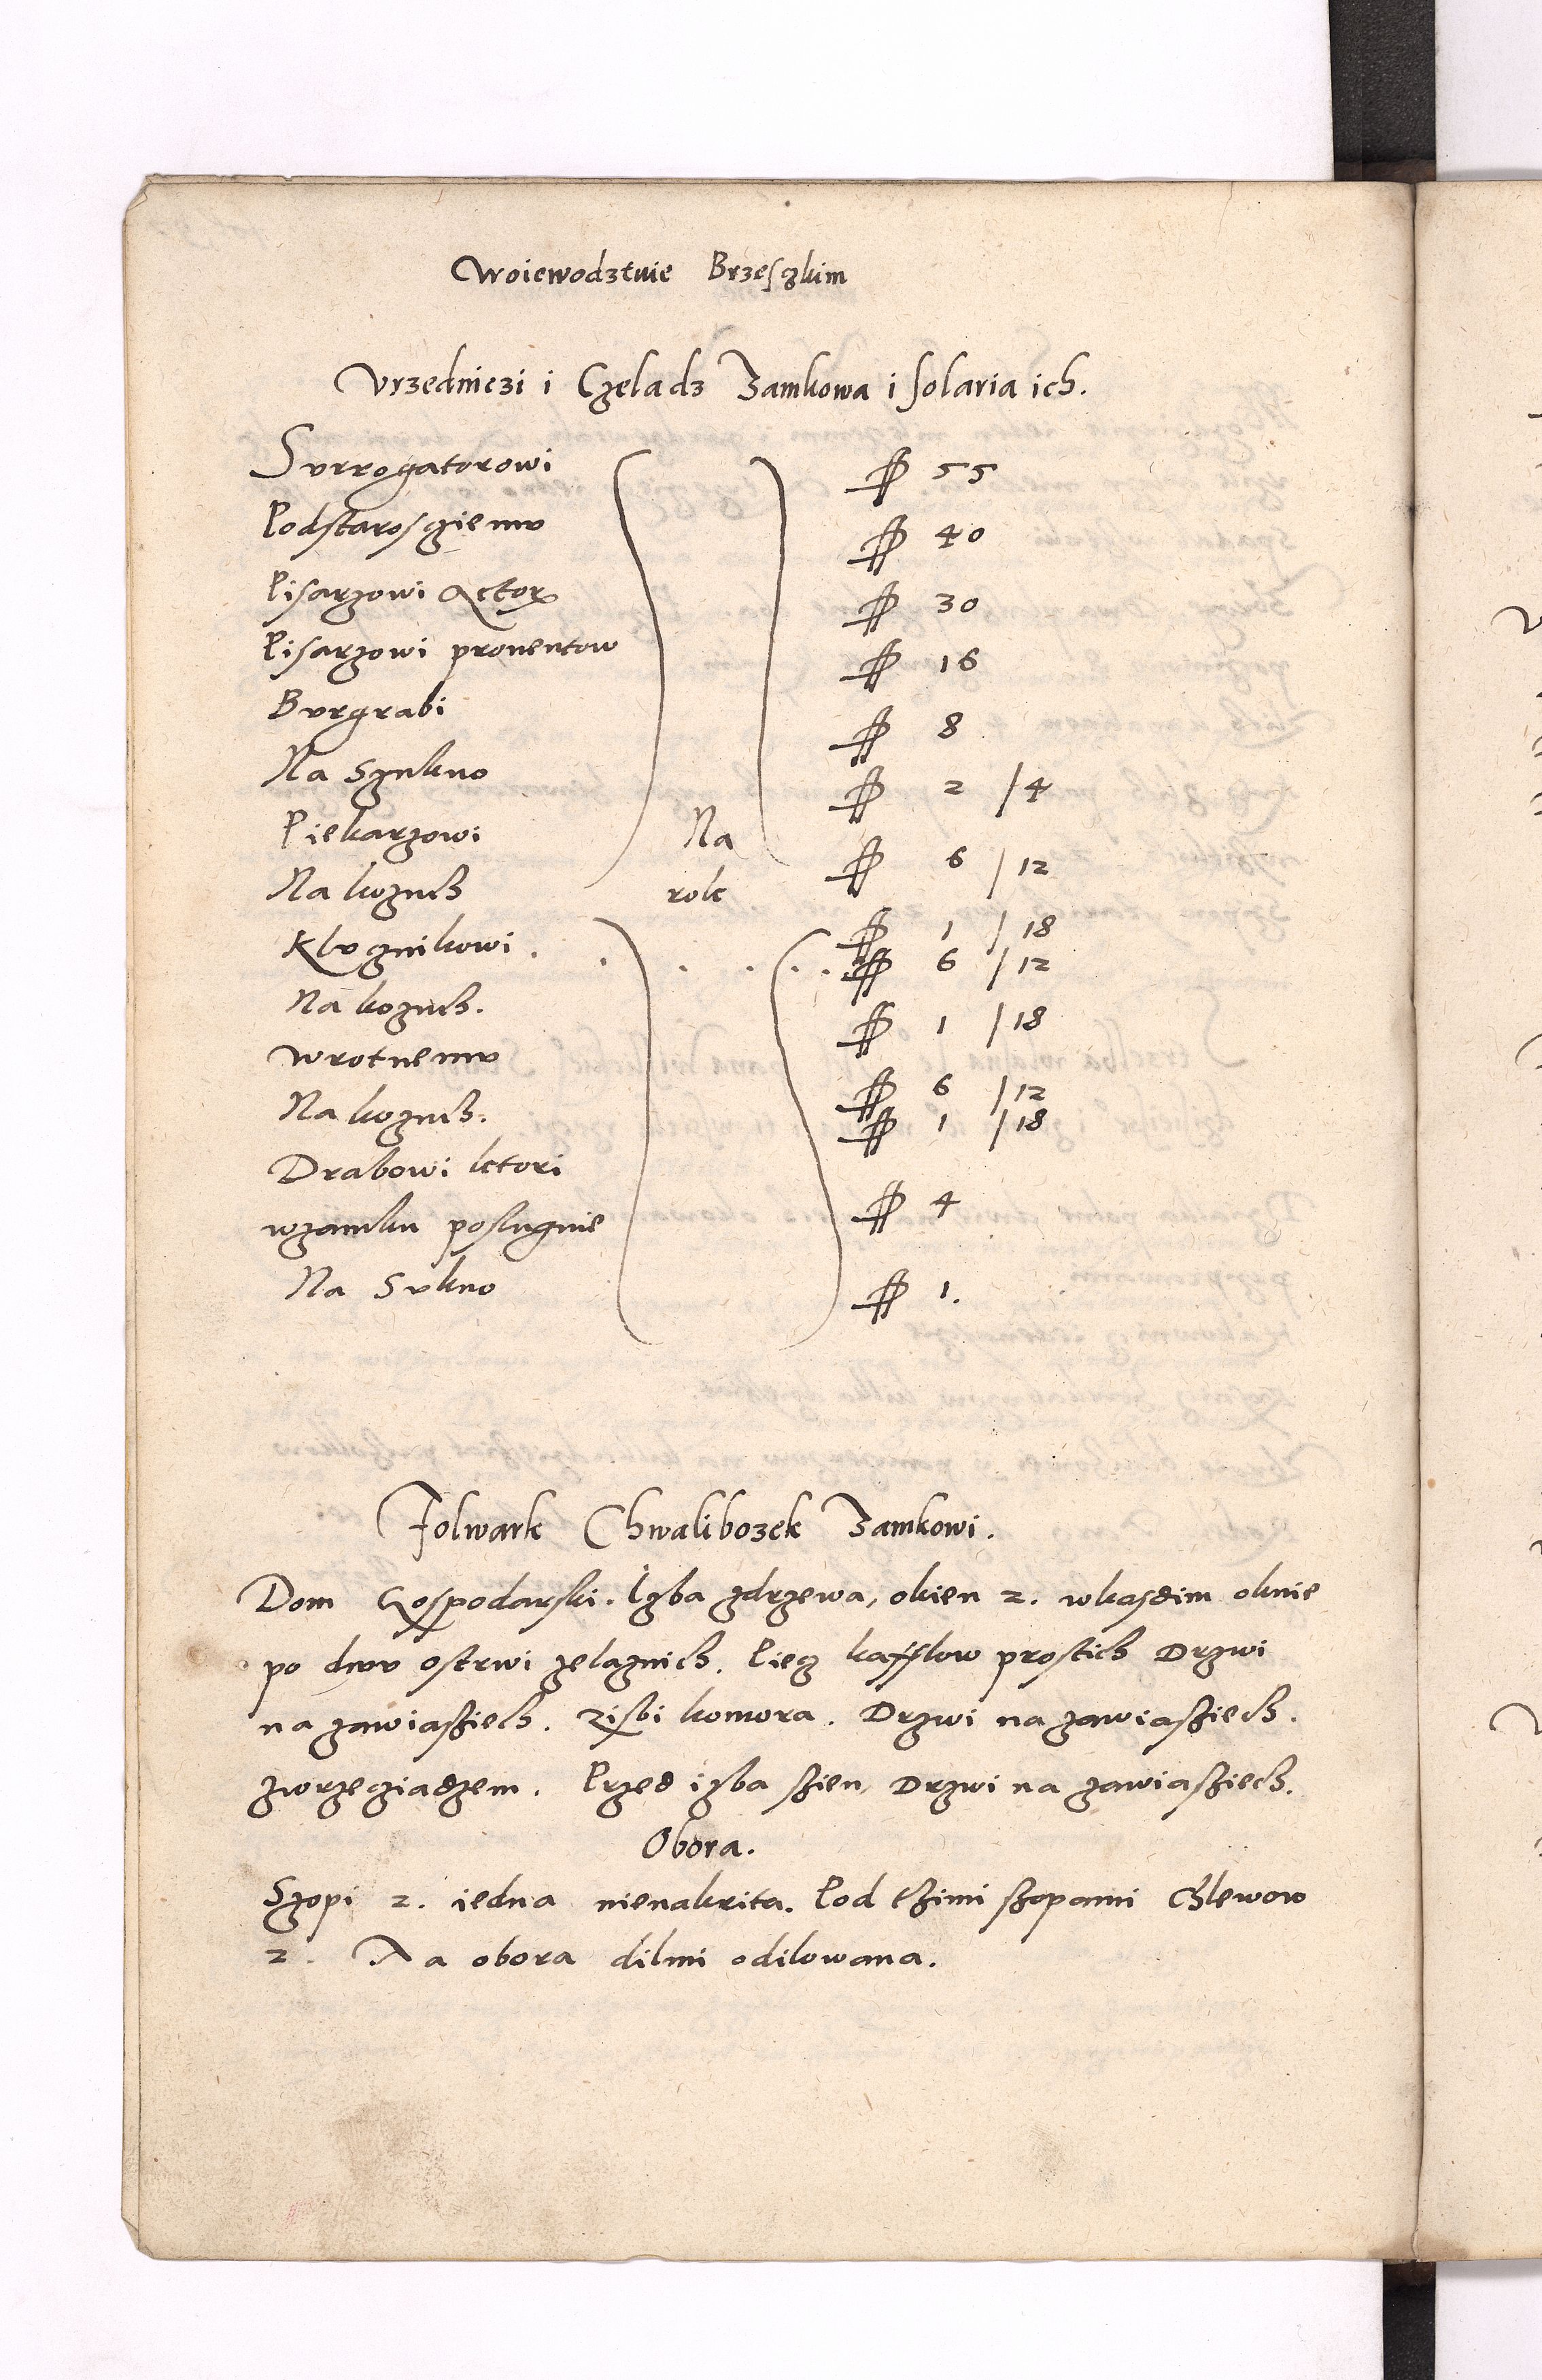 Woiewodztwie Brzesczkim
Vrzedniczi i Czeladz Zamkowa i solaria ich.
Surrogatorowi ₶ 55
Podstaroscziemv ₶ 40
Pisarzowi Actor ₶ 30
Pisarzowi prouentow ₶ 16
Bvrgrabi ₶ 8
Na Szukno ₶ 2 / 4
Piekarzowi Na ₶ 6 / 12
Na kozuch rok ₶ 1 / 18
Klvznikowi . . . . . . ₶ 6 / 12
Na kozuch. ₶ 1 / 18
Wrotnemv ₶ 6 / 12
Na kozuch. ₶ 1 / 18
Drabowi ktori
wzamku posluguie ₶ 4
Na Svkno ₶ 1.
Folwark Chwalibozek Zamkowi.
Dom Gospodarski. Izba zdrzewa, okien 2. wkasdim oknie
po dwv ostrwi zelaznich. Piecz kafflow prostich Drzwi
na zawiasziech. Zisbi komora. Drzwi na zawiasziech.
zwrzecziadzem. Przed izba szien, Drzwi na zawiasziech.
Obora.
Szopi 2. iedna nienakrita. Pod tzimi szopami Chlewow
2. Ta obora dilmi odilowana.